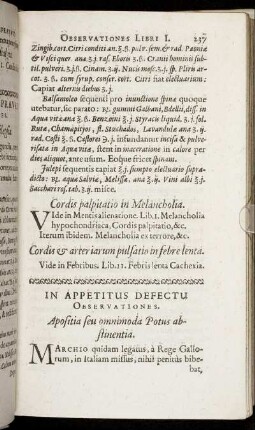 OBSERVATIONES LIBRI I. 237
Zingib. cort. Citri conditi an. ℥.ß. pulv. sem. & rad. Pæoniæ
& Visci quer. ana ʒ.j. ras. Eboris ʒ.ß. Cranii hominis subti-
til. pulveri. ʒ.jß. Cinam. ʒ.ij. Nucis mosc. ʒ.j. fp. Pliris ar-
cot. ʒ.ß. cum syrup. conser. cort. Citri fiat electuarium;
Capiat alternis diebus ʒ.j.
Balsamoleo sequenti pro inunctione spinæ quoque
utebatur, sic parato: ℞. gummi Galbani, Bdellii, diss. in
Aqua vitæ ana ℥.ß. Benzoini ʒ.j. Styracis liquid. ʒ.j. fol.
Ruta, Chamæpityos, fl. Stœchados, Lavandulæ ana ʒ.ij.
rad. Costi ʒ.ß. Castorei ʒ.j. infundantur incisa & pulve-
risata in Aqua vitæ, stent in maceratione in calore per
dies aliquot, ante usum. Eoque fricet spinam.
Julepi sequentis capiat ℥.j. sumpto electuario supra-
dicto: ℞. aquæ Salviæ, Melissæ ana ℥.ij. Vini albi ℥.j.
Sacchari ros. tab. ʒ.ij. misce.
Cordis palpitatio in Melancholia.
VIde in Mentis alienatione. Lib. 1. Melancholia
hypochondriaca, Cordis palpitatio, &c.
Iterum ibidem. Melancholia ex terrore, &c.
Cordis & arteriarum pulsatio in febre lenta.
Vide in Febribus. Lib. 11. Febris lenta Cachexia.
IN APPETITUS DEFECTU
OBSERVATIONES.
Apositia seu omnimoda Potus ab-
stinentia.
MARCHIO quidam legatus, à Rege Gallo-
rum, in Italiam missus, nihil penitùs bibe-
bat,